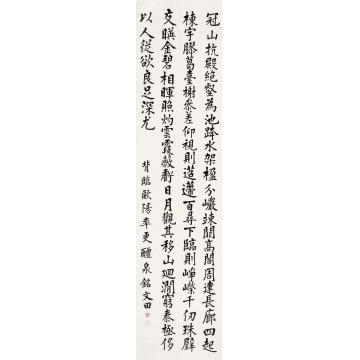 冠山抗殿絕壑為池跨水架楹分巖竦闕高閣周建長廊四起
棟宇膠葛臺榭叅差仰視則迢遰百尋下臨則崢嶸千仞珠壁
交暎金碧相暉照灼雲霞蔽虧日月觀其移山迴澗窮泰極侈
以人從欲良足深尤
背臨歐陽率更醴泉銘 文田